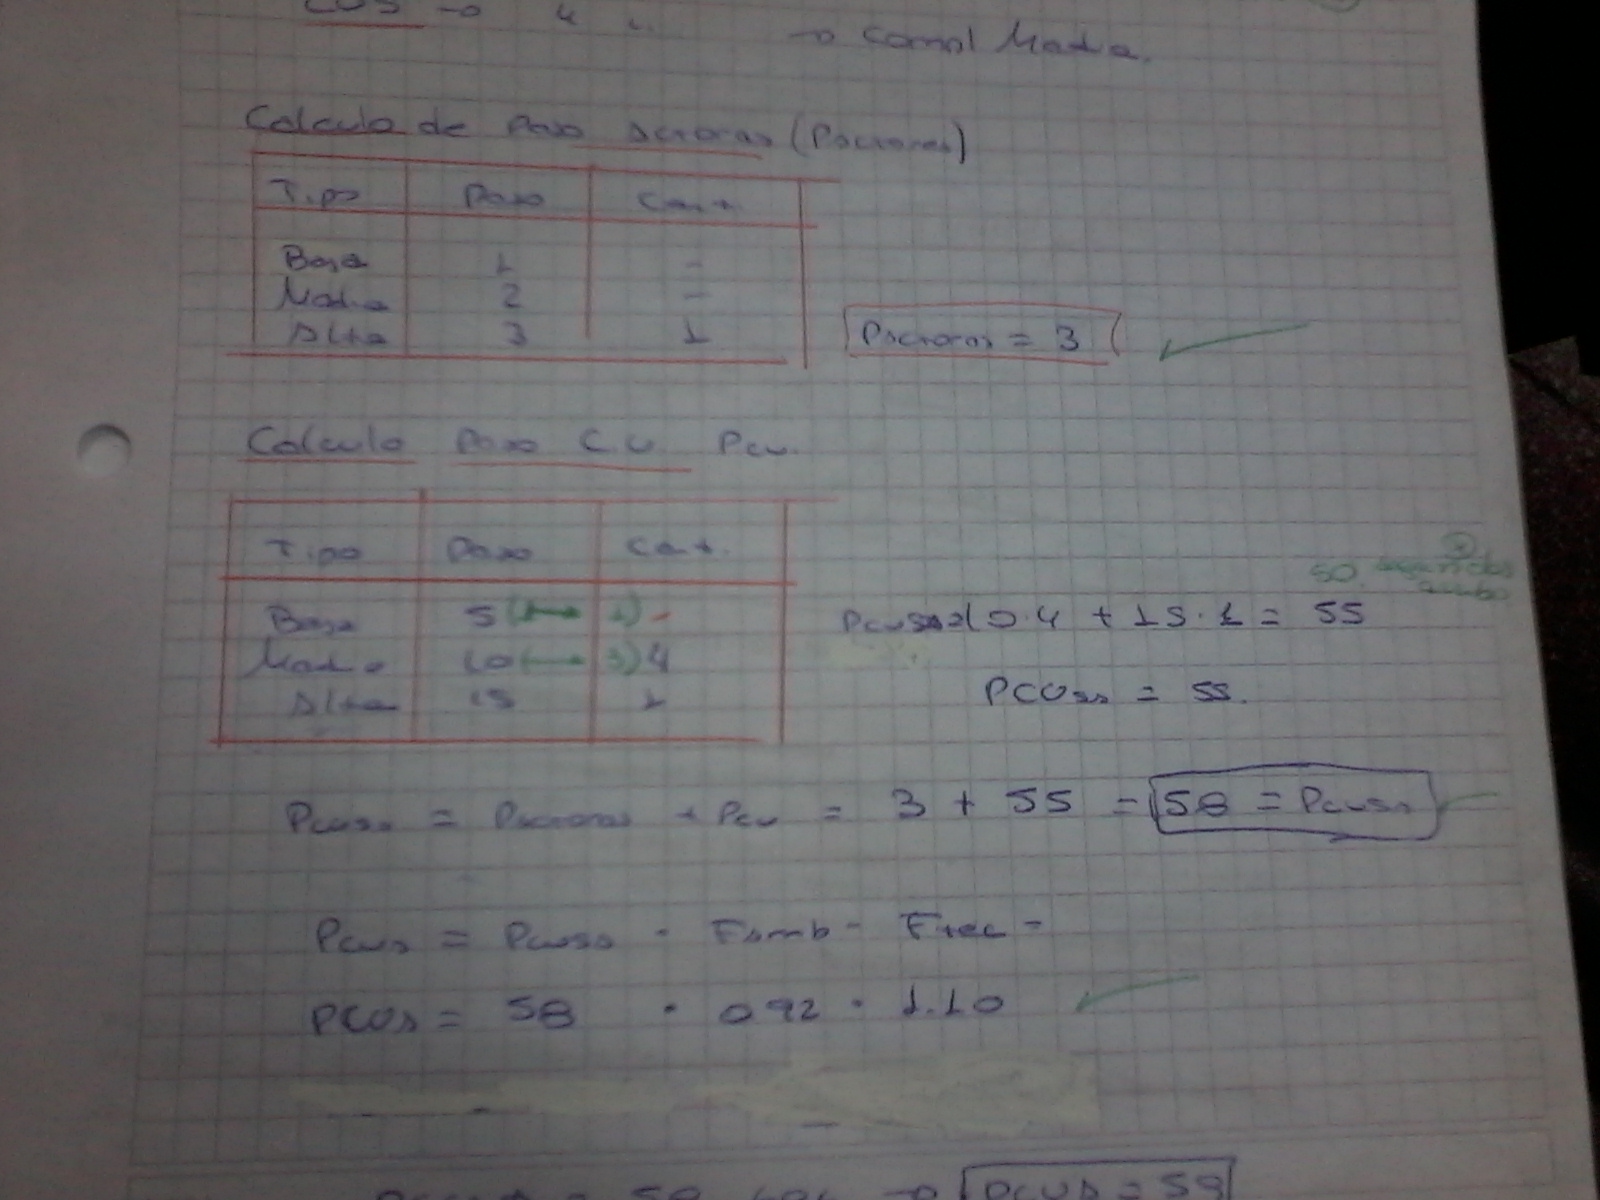 CU5 →
→ Compl Media.
Calculo de Peso Actores (PActores)
Tipo Peso Cant.
Baja 1 -
Media 2 -
Alta 3 1
PActores = 3
Calculo Peso C.U PCU.
Tipo Peso Cant.
Baja 5 (1→ 1) -
Media 10 (→ 3) 4
Alta 15 1
50
10.4 + 15.1 = 55
= 55.
PCUSA = PActores + PCU = 3 + 55 = 58 = PCUSA
PCUA = PCUSA · FAmb · FTec =
PCUA = 58 · 0.92 · 1.10
PCUA = 59